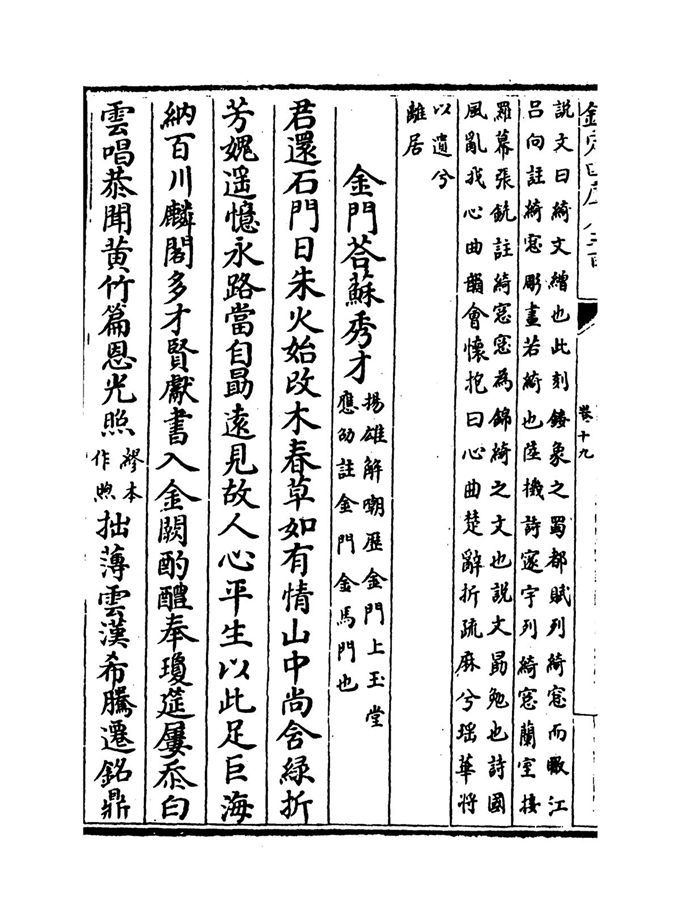 卷十九
説文曰綺文繒也此刻鏤象之蜀都賦列綺窓而瞰江
吕向註綺窓彫畫若綺也陸機詩邃宇列綺窓蘭室接
羅幕張銑註綺窓窓為錦綺之文也説文勗勉也詩國
風亂我心曲韻會懷抱曰心曲楚辭折疏麻兮瑶華將
以遺兮
離居
金門荅蘇秀才
揚雄解嘲歴金門上玉堂
應劭註金門金馬門也
君還石門日朱火始改木春草如有情山中尚含緑折
芳媿遥憶永路當自勗遠見故人心平生以此足巨海
納百川麟閣多才賢獻書入金闕酌醴奉瓊筵屢忝白
雲唱恭聞黄竹篇恩光照
繆本
作煦
拙薄雲漢希騰遷銘鼎